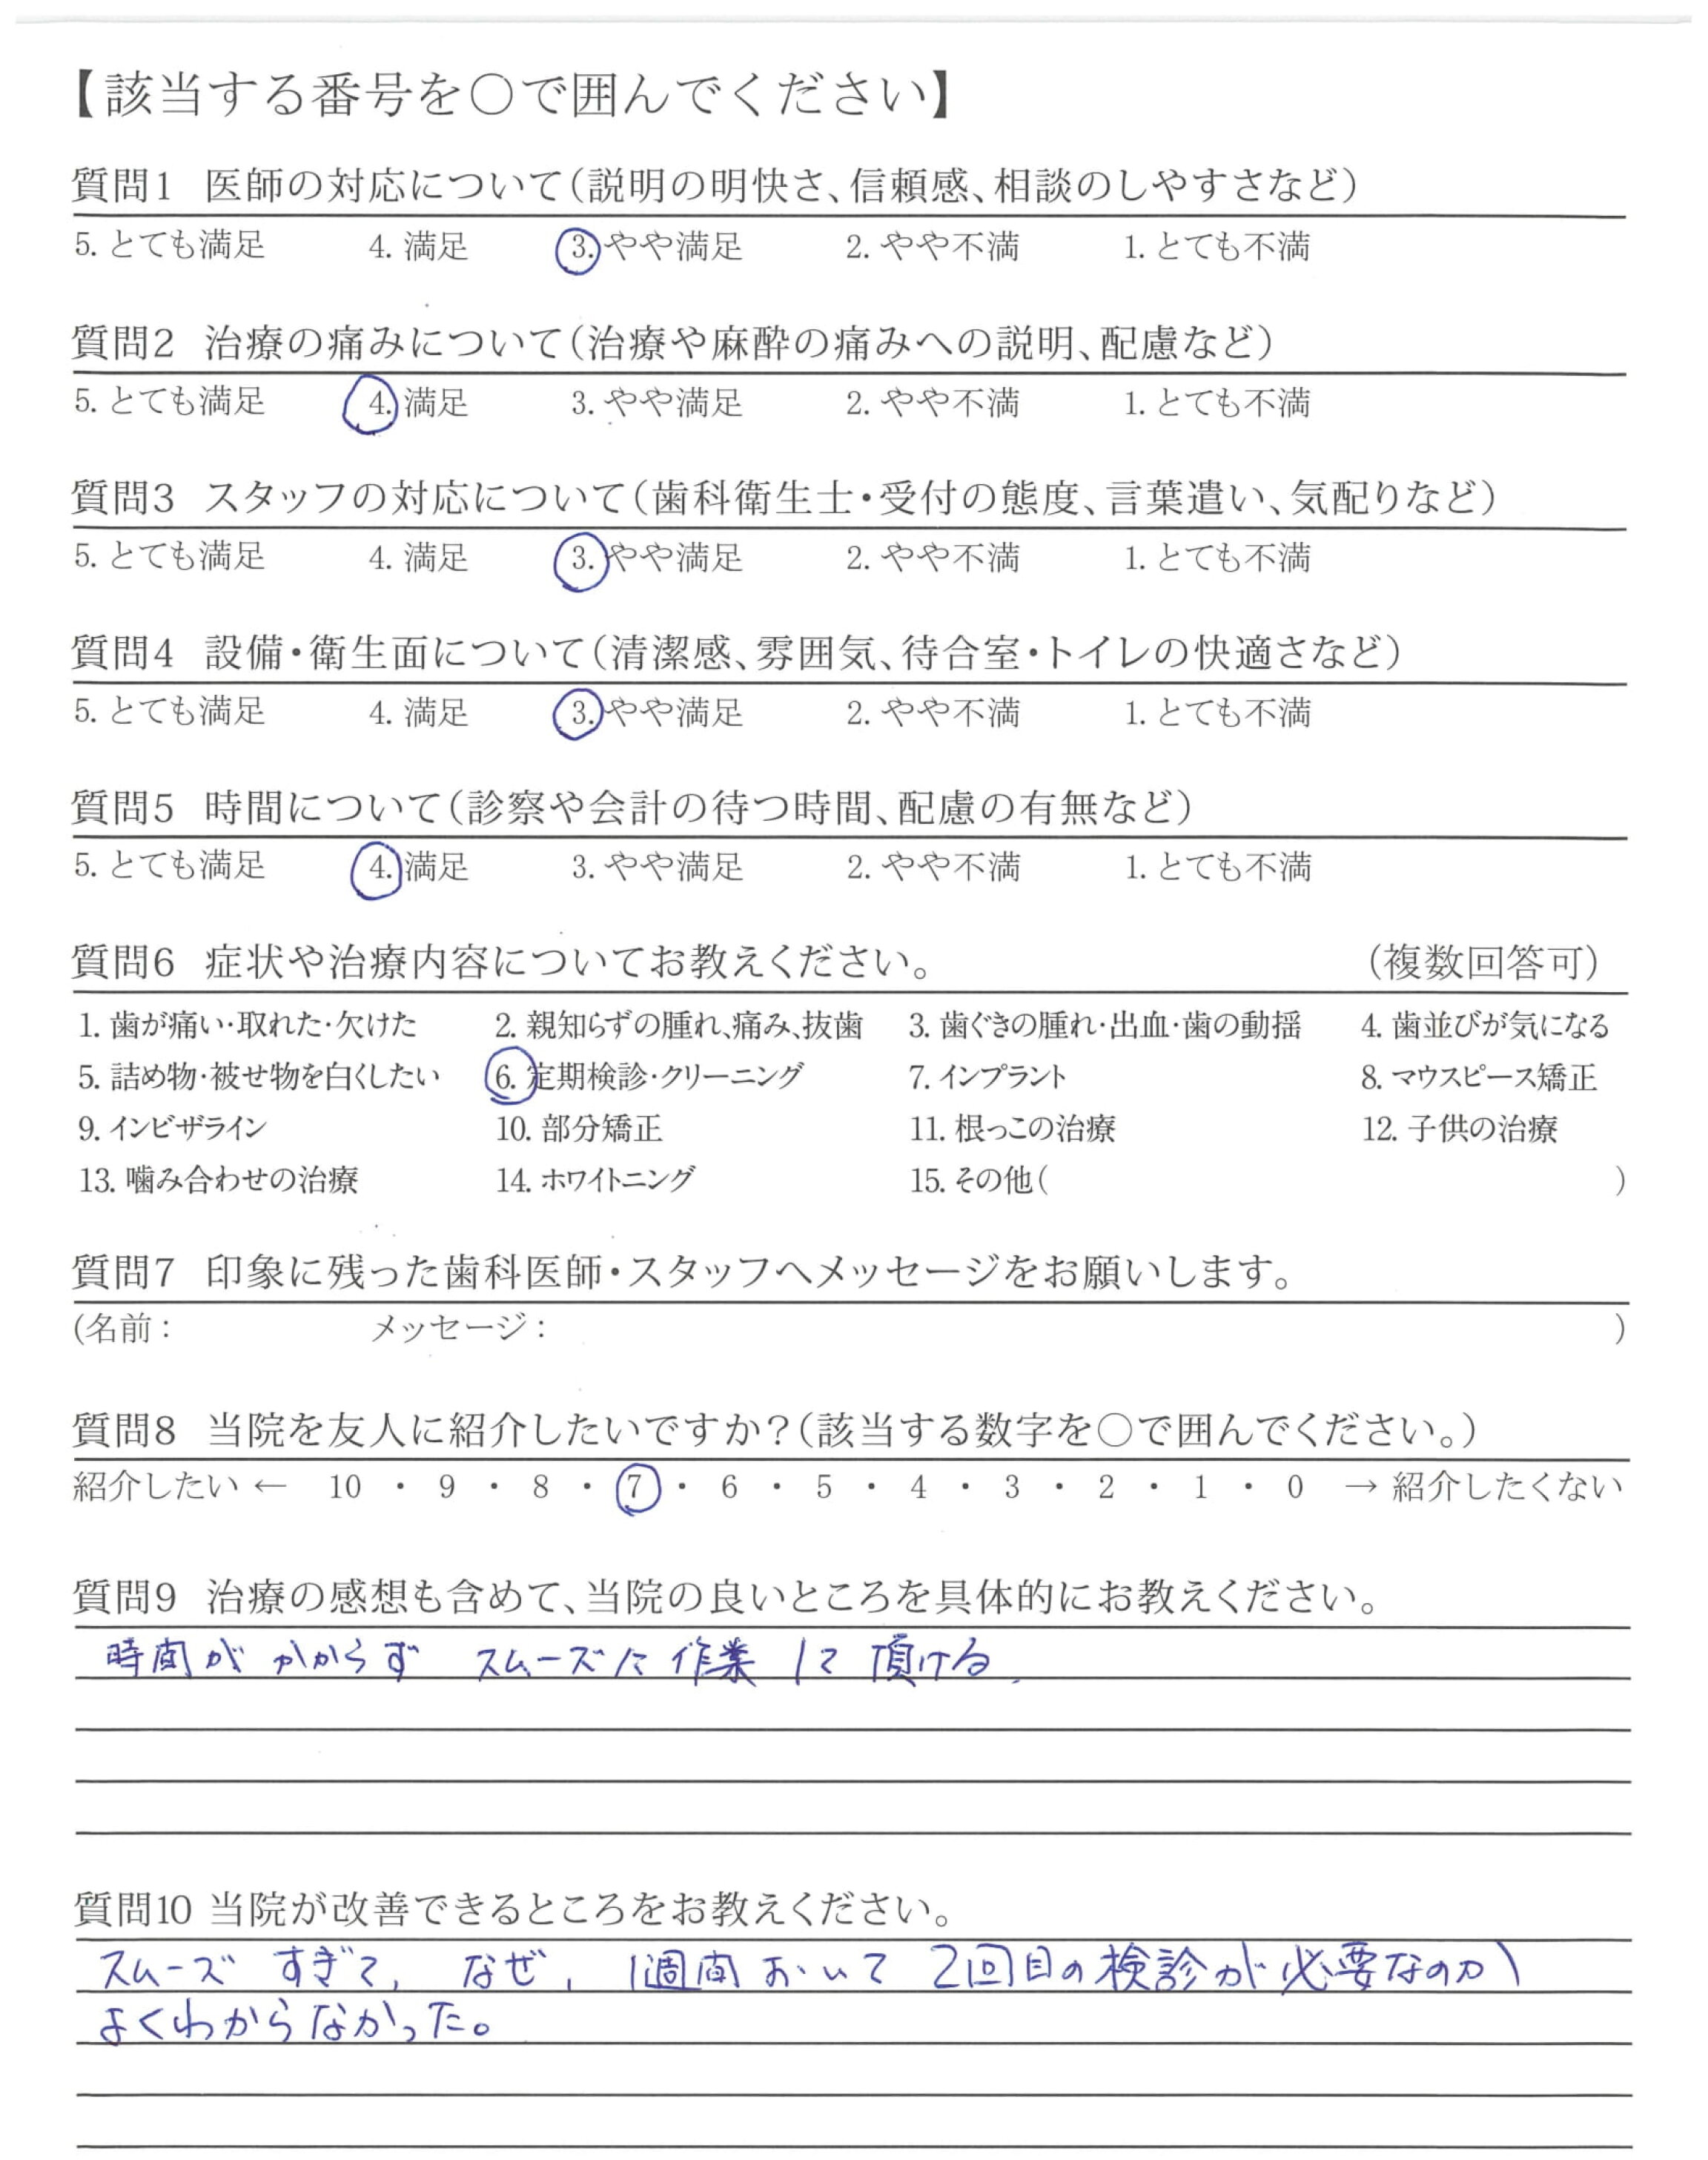 【該当する番号を○で囲んでください】
質問1 医師の対応について（説明の明快さ、信頼感、相談のしやすさなど）
5. とても満足 4. 満足 3. やや満足 2. やや不満 1. とても不満
質問2 治療の痛みについて（治療や麻酔の痛みへの説明、配慮など）
5. とても満足 4. 満足 3. やや満足 2. やや不満 1. とても不満
質問3 スタッフの対応について（歯科衛生士・受付の態度、言葉遣い、気配りなど）
5. とても満足 4. 満足 3. やや満足 2. やや不満 1. とても不満
質問4 設備・衛生面について（清潔感、雰囲気、待合室・トイレの快適さなど）
5. とても満足 4. 満足 3. やや満足 2. やや不満 1. とても不満
質問5 時間について（診察や会計の待つ時間、配慮の有無など）
5. とても満足 4. 満足 3. やや満足 2. やや不満 1. とても不満
質問6 症状や治療内容についてお教えください。 （複数回答可）
1. 歯が痛い・取れた・欠けた 2. 親知らずの腫れ、痛み、抜歯 3. 歯ぐきの腫れ・出血・歯の動揺 4. 歯並びが気になる
5. 詰め物・被せ物を白くしたい 6. 定期検診・クリーニング 7. インプラント 8. マウスピース矯正
9. インビザライン 10. 部分矯正 11. 根っこの治療 12. 子供の治療
13. 噛み合わせの治療 14. ホワイトニング 15. その他( )
質問7 印象に残った歯科医師・スタッフへメッセージをお願いします。
(名前： メッセージ： )
質問8 当院を友人に紹介したいですか？（該当する数字を○で囲んでください。）
紹介したい ← 10 ・ 9 ・ 8 ・ 7 ・ 6 ・ 5 ・ 4 ・ 3 ・ 2 ・ 1 ・ 0 → 紹介したくない
質問9 治療の感想も含めて、当院の良いところを具体的にお教えください。
時間が かからず スムーズに 作業して 頂ける.
質問10 当院が改善できるところをお教えください。
スムーズ すぎて、なぜ、1週間おいて 2回目の検診が必要なのか
よくわからなかった。